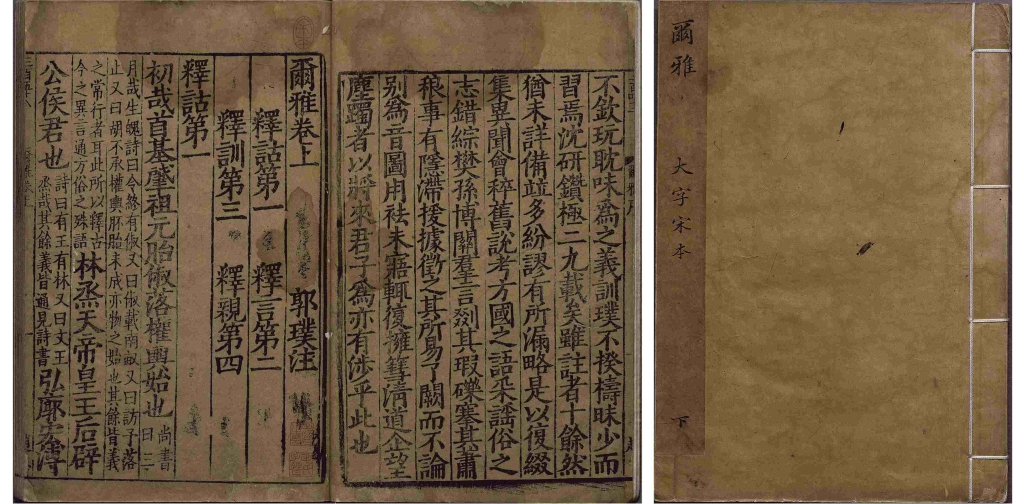 不欽玩耽味為之義訓璞不揆檮昧少而
習焉沈研鑽極二九載矣雖註者十餘然
猶未詳備竝多紛謬有所漏略是以復綴
集異聞會稡舊說考方國之語采謠俗之
志錯綜樊孫博關羣言剟其瑕礫搴其蕭
稂事有隱滯援據徵之其所易了闕而不論
別為音圖用袪未寤輒復擁篲清道企望
塵躅者以將來君子為亦有涉乎此也
爾雅卷上 郭璞注
釋詁第一 釋言第二
釋訓第三 釋親第四
釋詁第一
初哉首基肈祖元胎俶落權輿始也 尚書曰三
月哉生魄詩曰令終有俶又曰俶載南畝又曰訪予落
止又曰胡不承權輿胚胎未成亦物之始也其餘皆義
之常行者耳此所以釋古今之異言通方俗之殊語 林烝天帝皇王后辟
公侯君也 詩曰有王有林又曰文王烝哉其餘義皆通見詩書 弘廓宏溥
爾雅 大字宋本 下